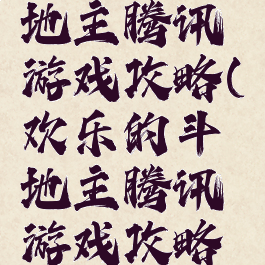 地主腾讯
游戏攻略(
欢乐的斗
地主腾讯
游戏攻略